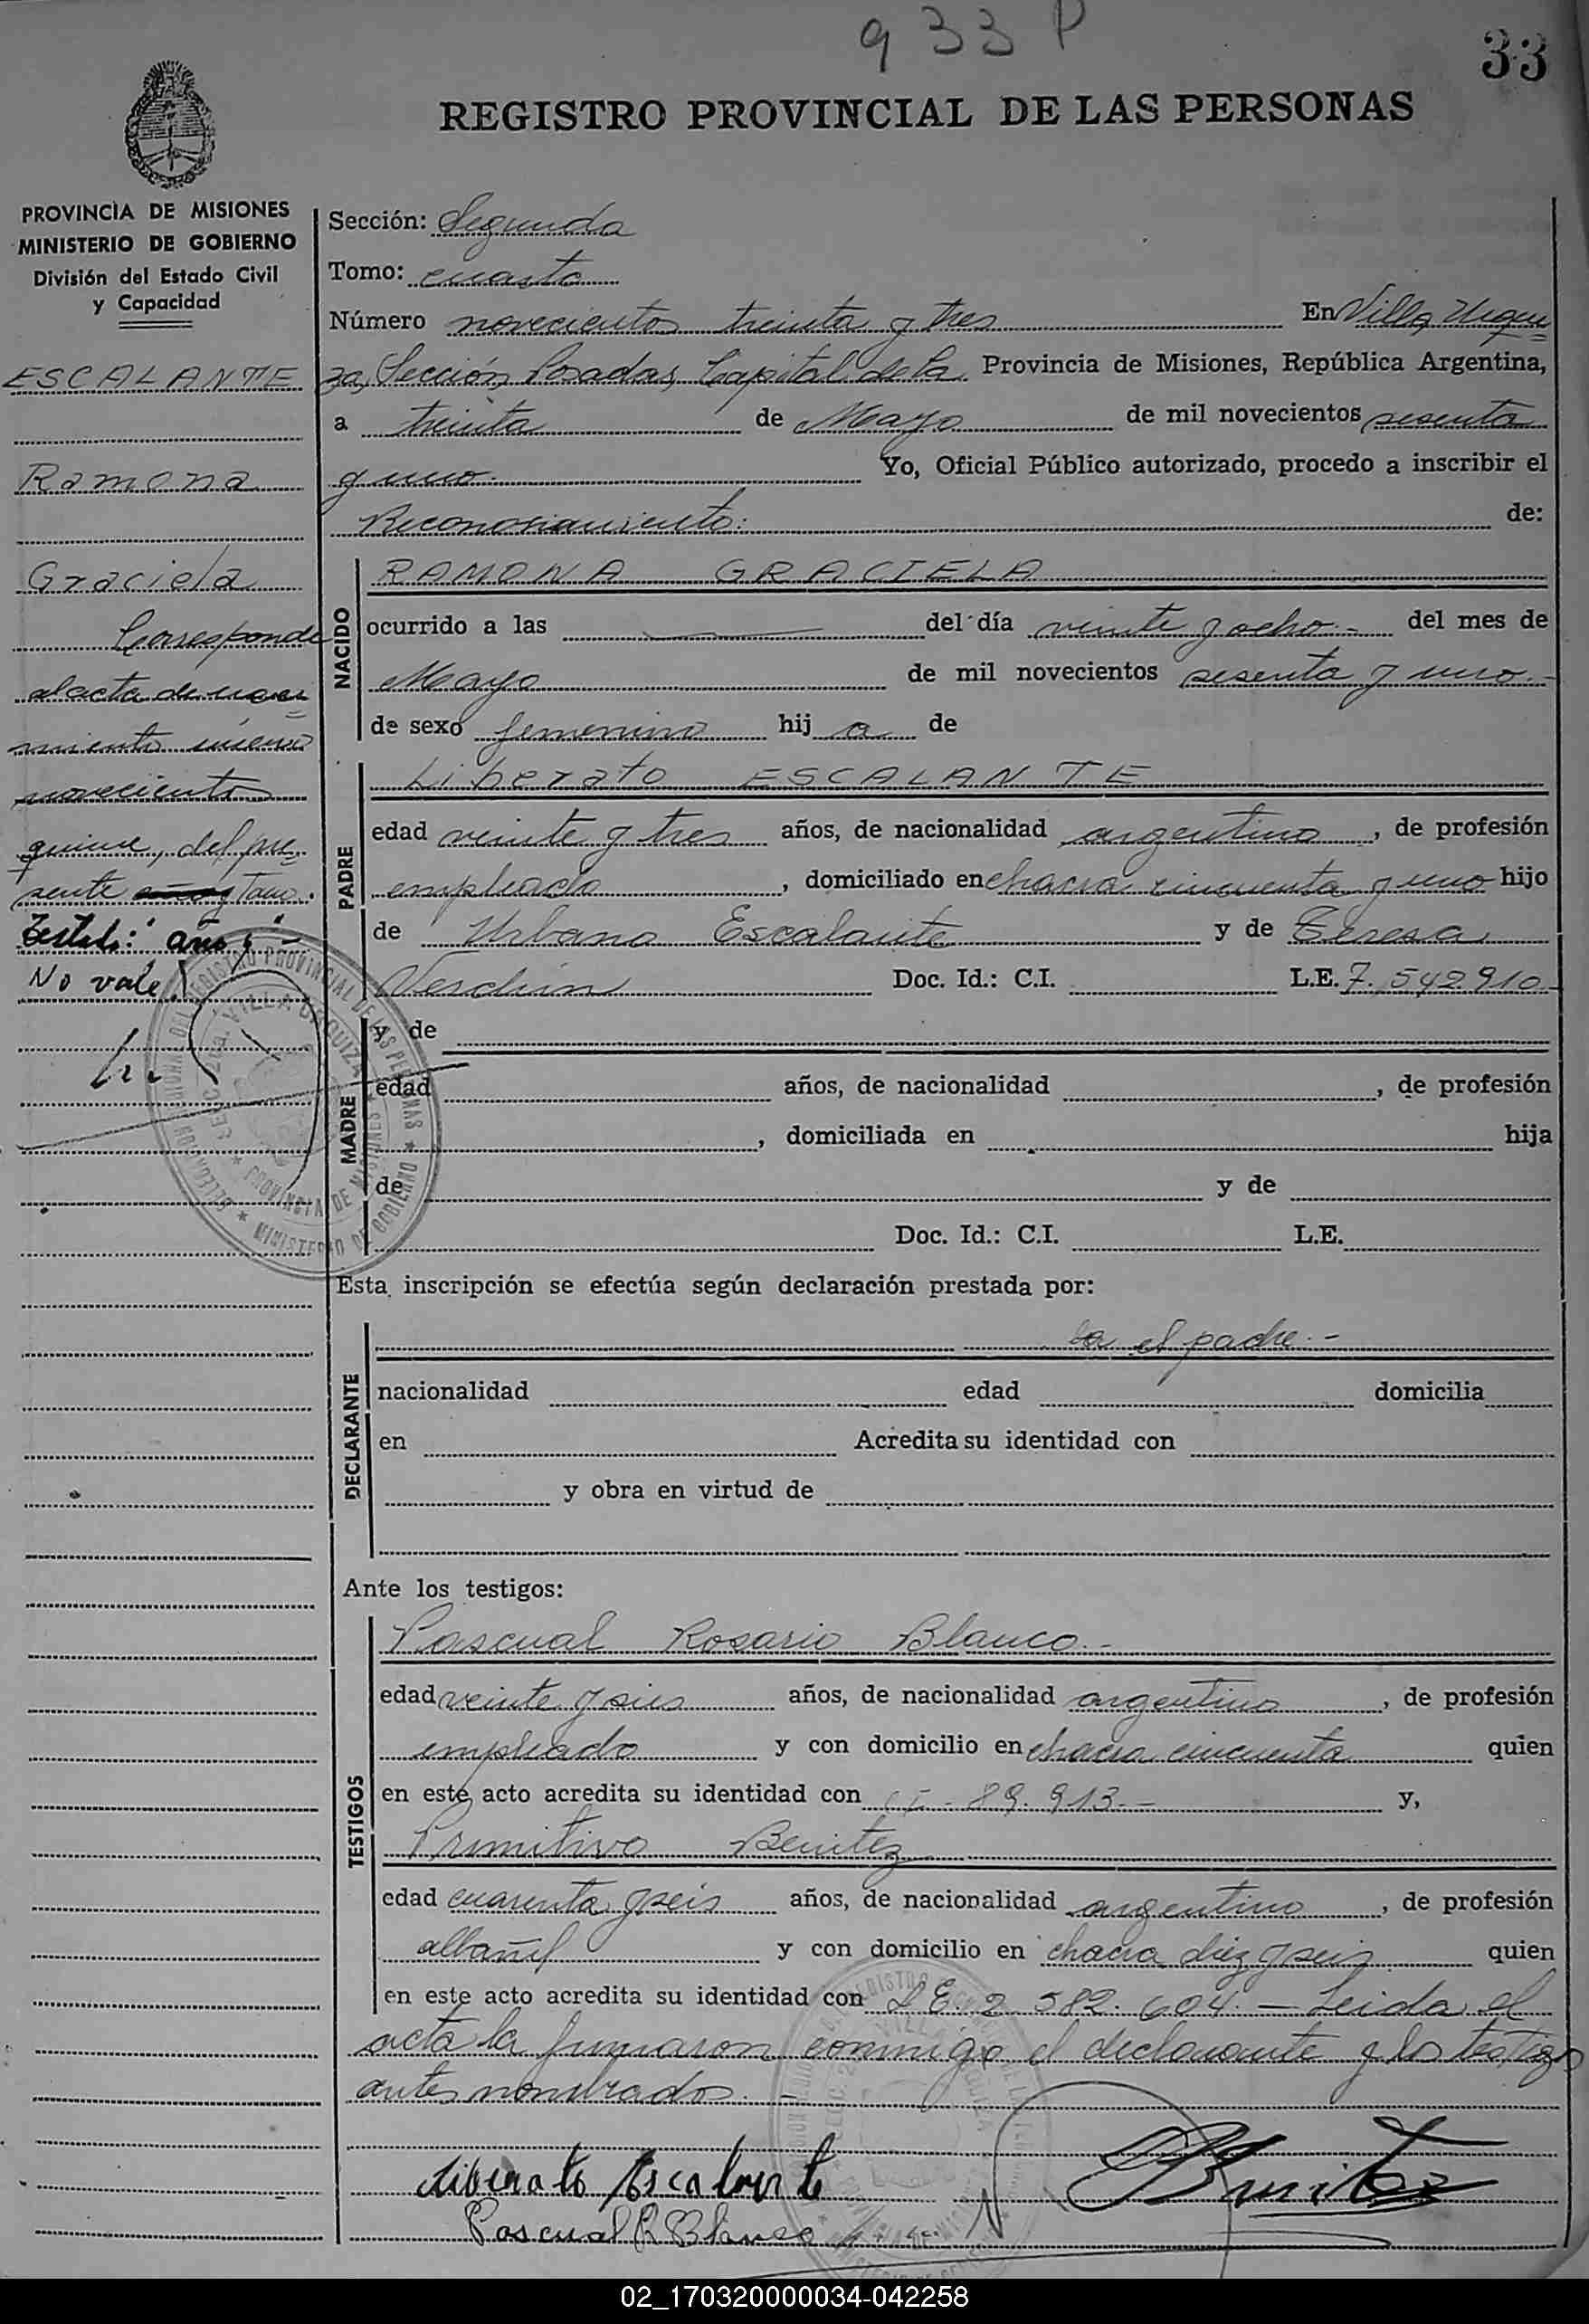 933 P
33
REGISTRO PROVINCIAL DE LAS PERSONAS
PROVINCIA DE MISIONES
MINISTERIO DE GOBIERNO
División del Estado Civil
y Capacidad
ESCALANTE
Ramona
Graciela
Corresponde
al acta de naci
miento número
novecientos
quince, del pre
sente año y Tomo.
Testado: "año y" -
No vale.
Sección: Segunda
Tomo: cuarto
Número novecientos treinta y tres En Villa Urqui
za, Sección Posadas, Capital de la Provincia de Misiones, República Argentina,
a treinta de Mayo de mil novecientos sesenta
y uno. Yo, Oficial Público autorizado, procedo a inscribir el
Reconocimiento: de:
NACIDO
RAMONA GRACIELA
ocurrido a las — del día veinte y ocho.- del mes de
Mayo de mil novecientos sesenta y uno.-
de sexo femenino hij a de
PADRE
Liberato ESCALANTE
edad veinte y tres años, de nacionalidad argentino, de profesión
empleado, domiciliado en chacra cincuenta y uno hijo
de Urbano Escalante y de Teresa
Verchin Doc. Id.: C.I. L.E. 7.542.910.-
MADRE
y de
edad años, de nacionalidad , de profesión
, domiciliada en hija
de y de
Doc. Id.: C.I. L.E.
Esta inscripción se efectúa según declaración prestada por:
DECLARANTE
el padre.-
nacionalidad edad domicilia
en Acredita su identidad con
y obra en virtud de
Ante los testigos:
TESTIGOS
Pascual Rosario Blanco.-
edad veinte y seis años, de nacionalidad argentino, de profesión
empleado y con domicilio en chacra cincuenta quien
en este acto acredita su identidad con C.I. 89.913.- y,
Primitivo Benitez
edad cuarenta y seis años, de nacionalidad argentino, de profesión
albañil y con domicilio en chacra diez y seis quien
en este acto acredita su identidad con L.E. 2.582.604.- Leida el
acta la firmaron conmigo el declarante y los testigos
antes nombrados.-
Liberato Escalante
Benitez
Pascual R Blanco
02_170320000034-042258